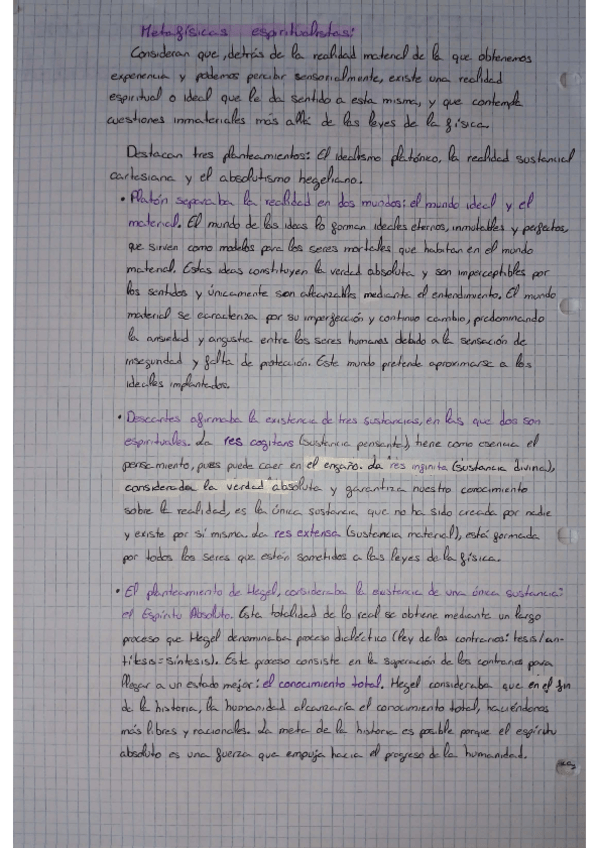 Metafísicas espiritualistas:
Consideran que, detrás de la realidad material de la que obtenemos
experiencia y podemos percibir sensorialmente, existe una realidad
espiritual o ideal que le da sentido a esta misma, y que contempla
cuestiones inmateriales más allá de las leyes de la física.
Destacan tres planteamientos: El idealismo platónico, la realidad sustancial
cartesiana y el absolutismo hegeliano.
• Platón separaba la realidad en dos mundos: el mundo ideal y el
material. El mundo de las ideas lo forman ideales eternos, inmutables y perfectos,
que sirven como modelos para los seres mortales que habitan en el mundo
material. Estas ideas constituyen la verdad absoluta y son imperceptibles por
los sentidos y únicamente son alcanzables mediante el entendimiento. El mundo
material se caracteriza por su imperfección y continuo cambio, predominando
la ansiedad y angustia entre los seres humanos debido a la sensación de
inseguridad y falta de protección. Este mundo pretende aproximarse a los
ideales implantados.
• Descartes afirmaba la existencia de tres sustancias, en las que dos son
espirituales. La res cogitans (sustancia pensante), tiene como esencia el
pensamiento, pues puede caer en el engaño. La res infinita (sustancia divina),
considerada la verdad absoluta y garantiza nuestro conocimiento
sobre la realidad, es la única sustancia que no ha sido creada por nadie
y existe por sí misma. La res extensa (sustancia material), está formada
por todos los seres que están sometidos a las leyes de la física.
• El planteamiento de Hegel, consideraba la existencia de una única sustancia:
el Espíritu Absoluto. Esta totalidad de lo real se obtiene mediante un largo
proceso que Hegel denominaba proceso dialéctico (ley de los contrarios: tesis/an-
títesis = síntesis). Este proceso consiste en la superación de los contrarios para
llegar a un estado mejor: el conocimiento total. Hegel consideraba que en el fin
de la historia, la humanidad alcanzaría el conocimiento total, haciéndonos
más libres y racionales. La meta de la historia es posible porque el espíritu
absoluto es una fuerza que empuja hacia el progreso de la humanidad.